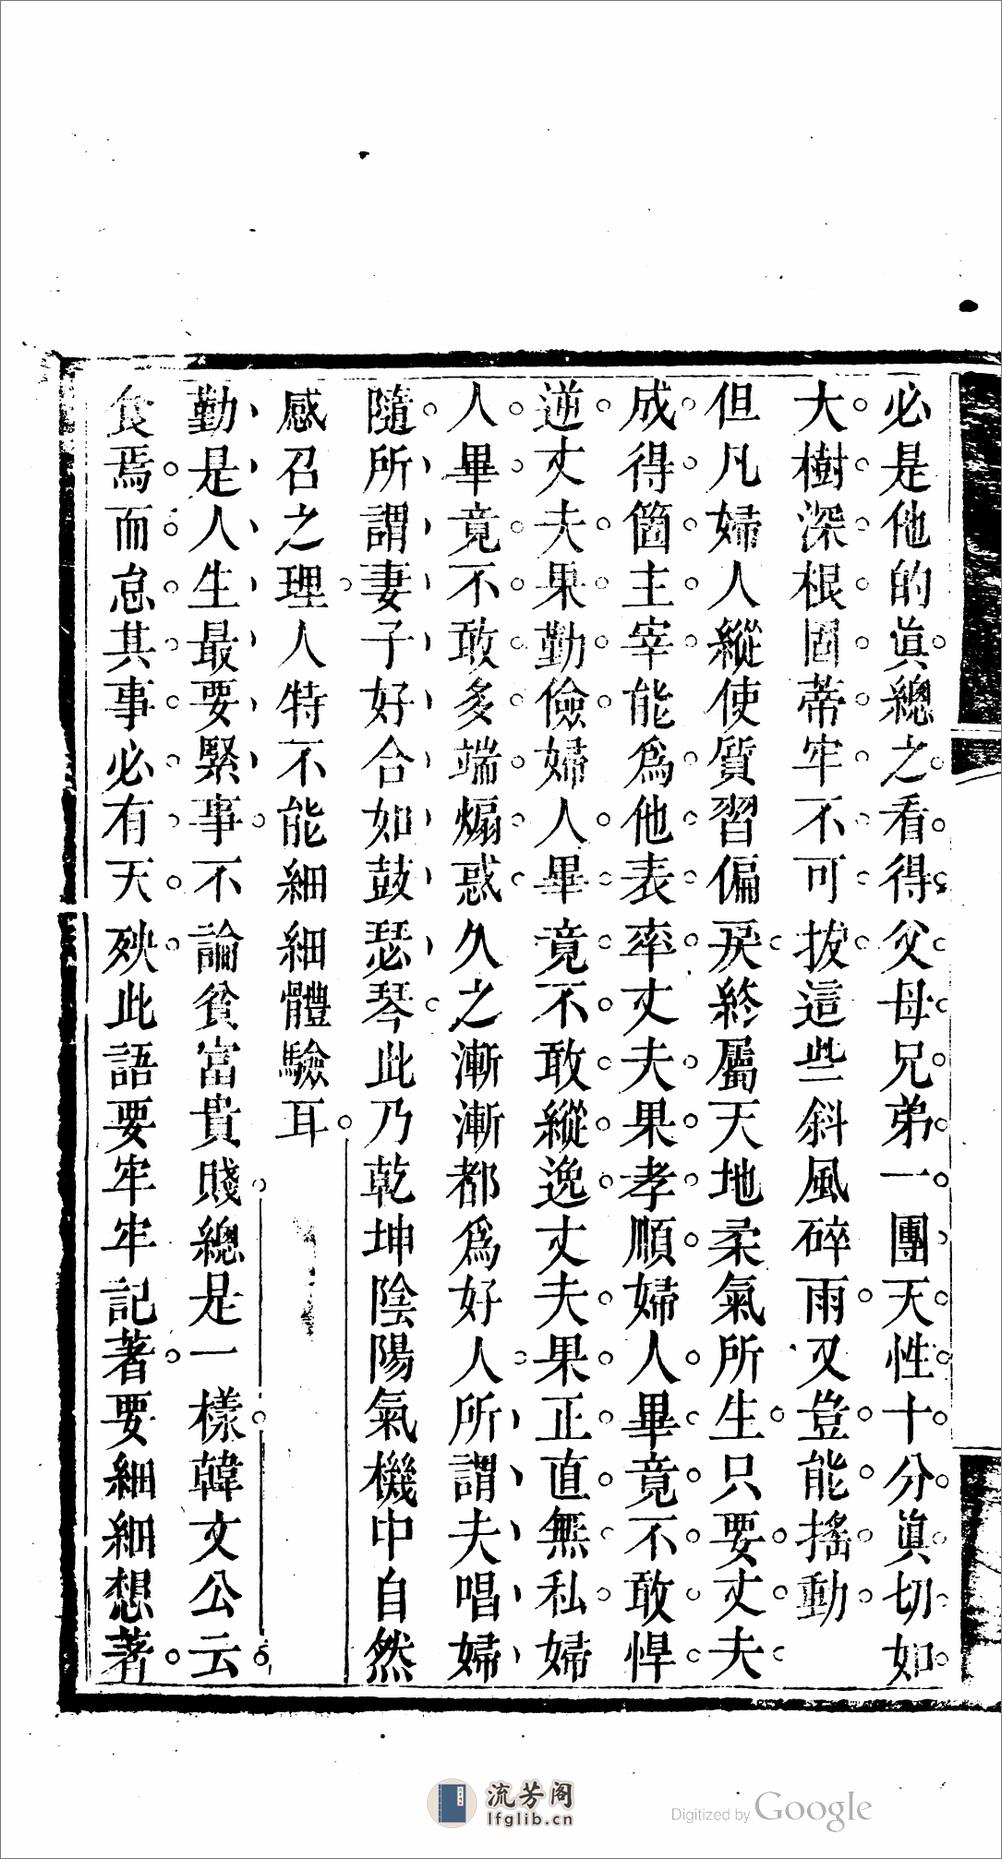 必是他的眞總之看得父母兄弟一團天性十分眞切如
大樹深根固蒂牢不可拔這些斜風碎雨又豈能搖動
但凡婦人縱使質習偏戾終屬天地柔氣所生只要丈夫
成得箇主宰能爲他表率丈夫果孝順婦人畢竟不敢悍
逆丈夫果勤儉婦人畢竟不敢縱逸丈夫果正直無私婦
人畢竟不敢多端煽惑久之漸漸都爲好人所謂夫唱婦
隨所謂妻子好合如鼓瑟琴此乃乾坤陰陽氣機中自然
感召之理人特不能細細體驗耳
勤是人生最要緊事不論貧富貴賤總是一樣韓文公云
食焉而怠其事必有天殃此語要牢牢記著要細細想著
流芳阁
lfglib.cn
Digitized by Google